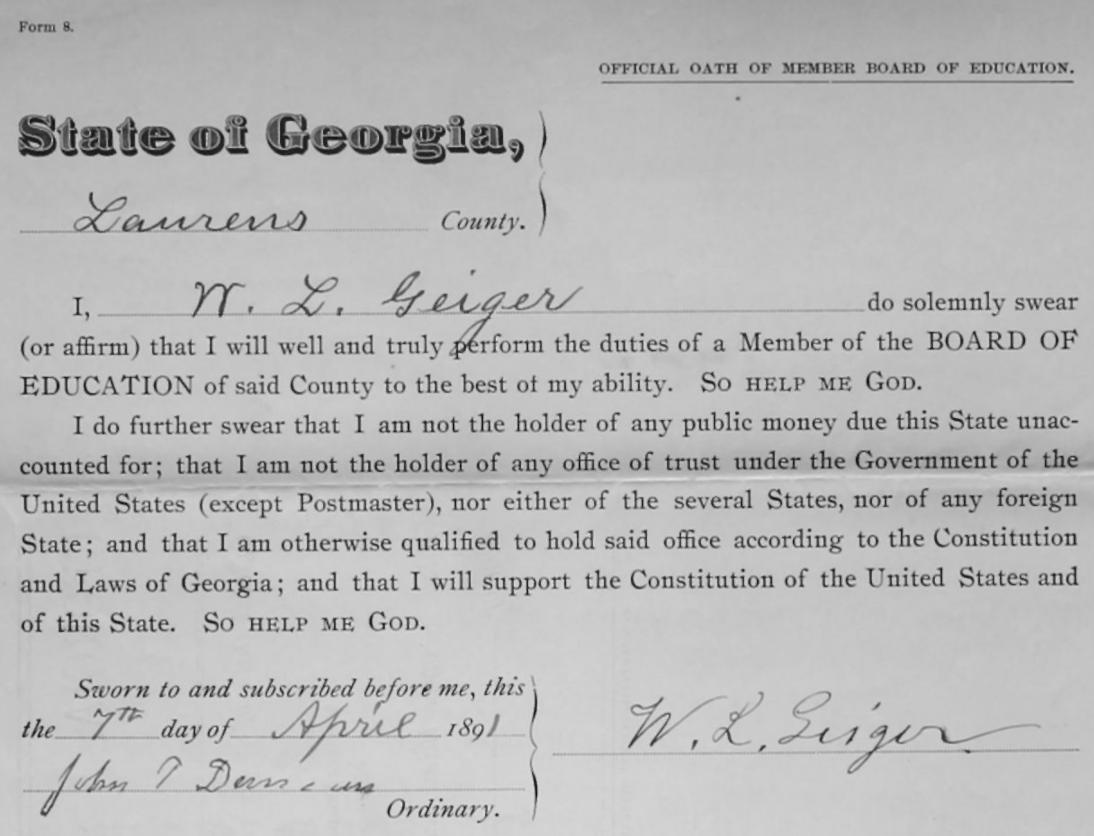 Form 8.
OFFICIAL OATH OF MEMBER BOARD OF EDUCATION.
State of Georgia,
Laurens County.
I, W. L. Geiger do solemnly swear
(or affirm) that I will well and truly perform the duties of a Member of the BOARD OF
EDUCATION of said County to the best of my ability. SO HELP ME GOD.
I do further swear that I am not the holder of any public money due this State unac-
counted for; that I am not the holder of any office of trust under the Government of the
United States (except Postmaster), nor either of the several States, nor of any foreign
State; and that I am otherwise qualified to hold said office according to the Constitution
and Laws of Georgia; and that I will support the Constitution of the United States and
of this State. SO HELP ME GOD.
Sworn to and subscribed before me, this
the 7th day of April 1891
W. L. Geiger
John T
Ordinary.